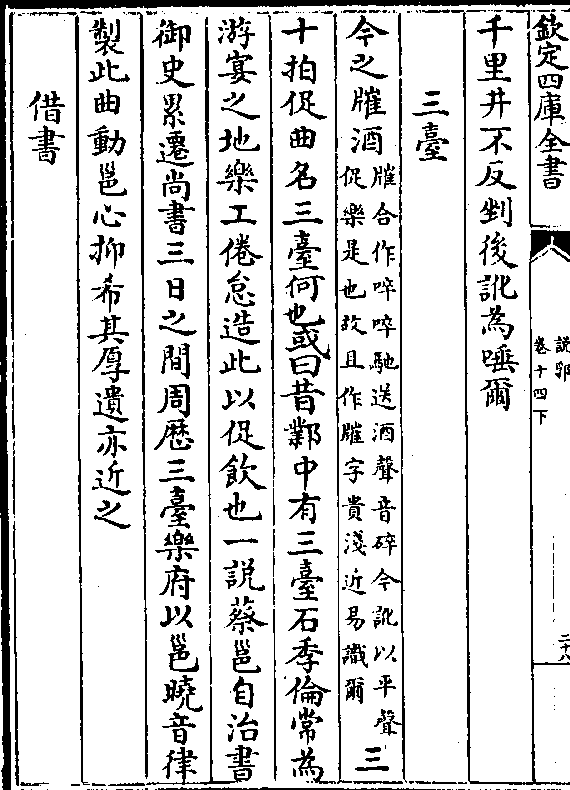 欽定四庫全書
說郛
卷十四下
二十八
千里井不反剉後訛為唾爾
三臺
今之䧳酒䧳合作啐啐馳送酒聲音碎今訛以平聲促樂是也故且作䧳字貴淺近易識爾三
十拍促曲名三臺何也或曰昔鄴中有三臺石季倫常為
游宴之地樂工倦怠造此以促飲也一說蔡邕自治書
御史累遷尚書三日之間周歷三臺樂府以邕曉音律
製此曲動邕心抑希其厚遺亦近之
借書